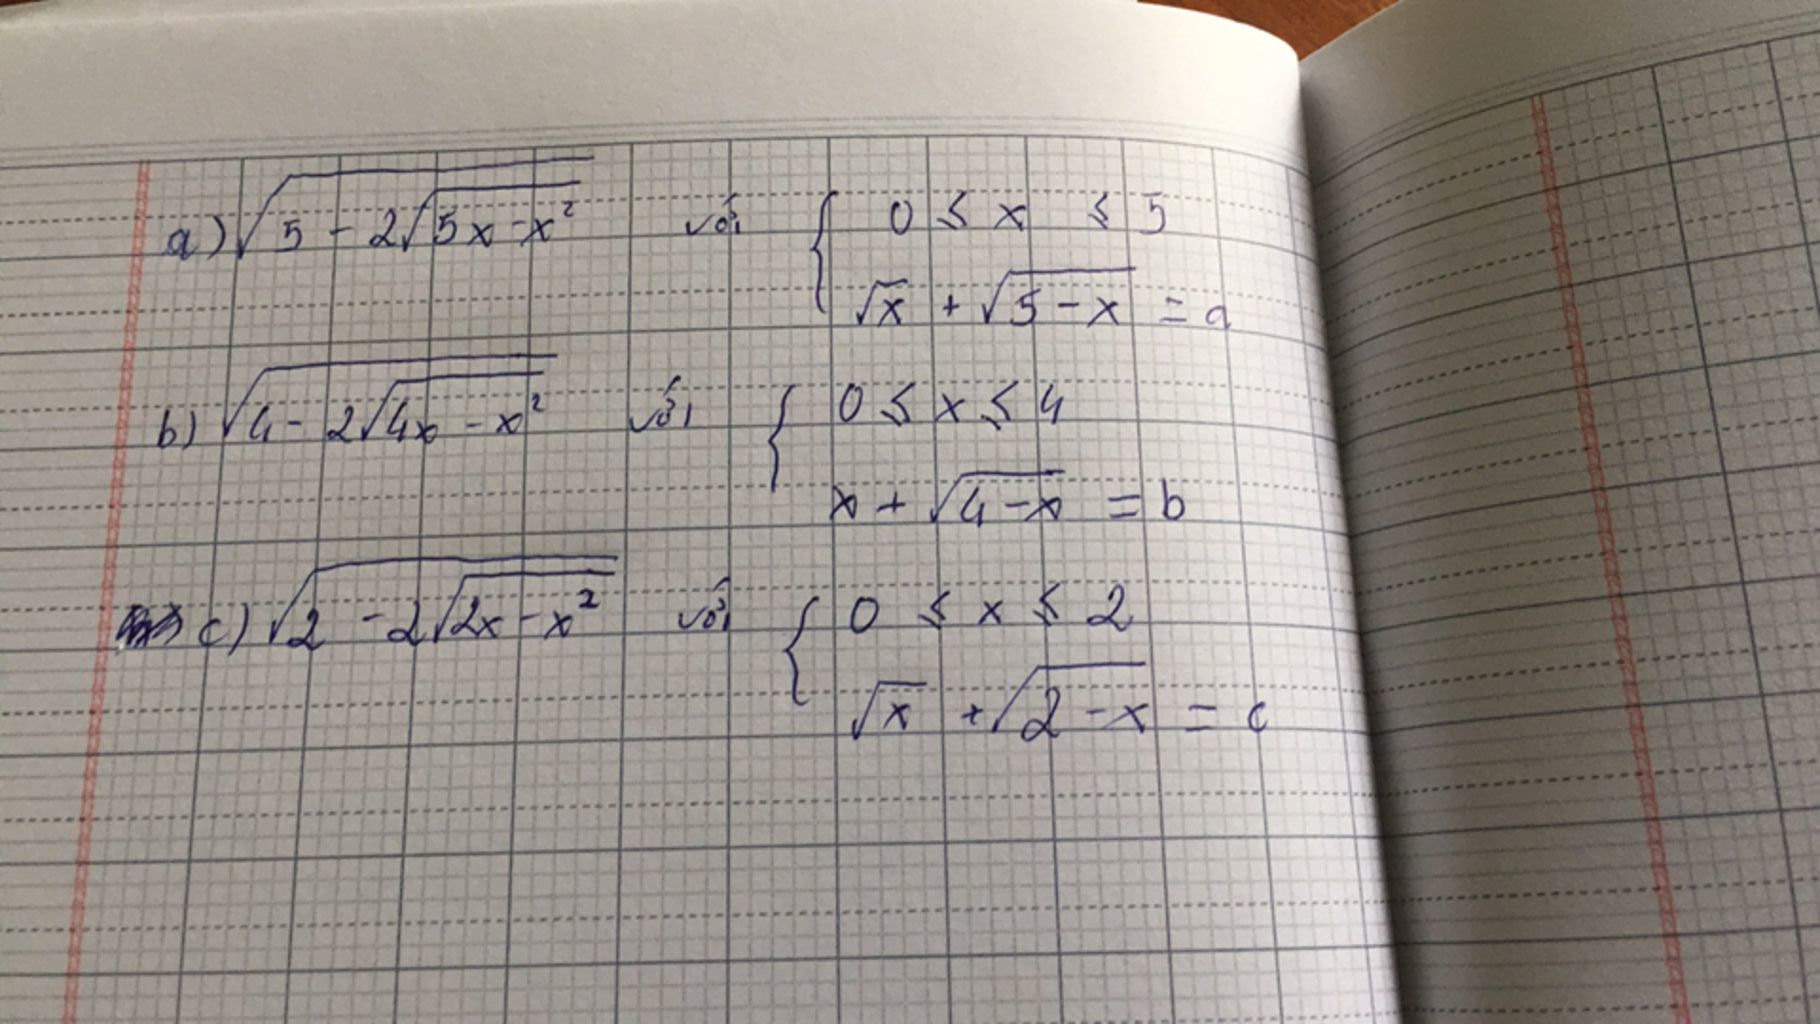 a) √(5 - 2√(5x - x²)) với { 0 ≤ x ≤ 5
√x + √(5 - x) = a
b) √(4 - 2√(4x - x²)) với { 0 ≤ x ≤ 4
x + √(4 - x) = b
c) √(2 - 2√(2x - x²)) với { 0 ≤ x ≤ 2
√x + √(2 - x) = c